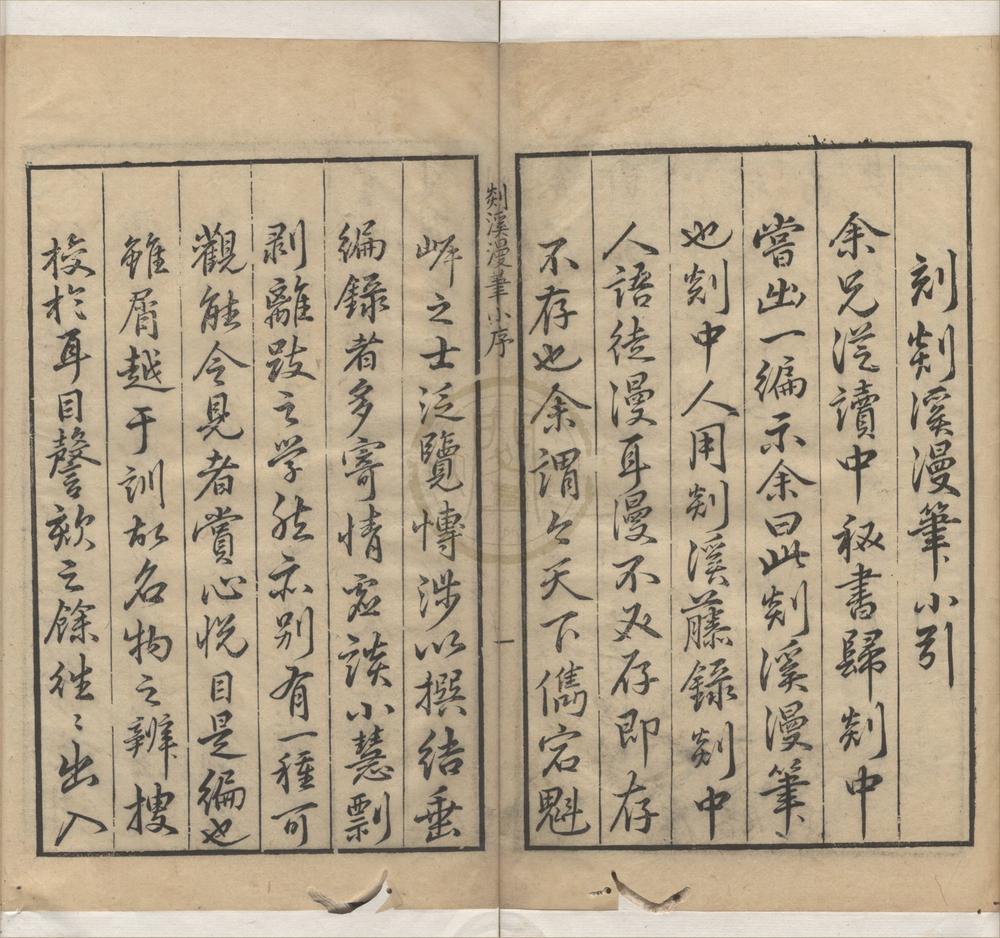 刻剡溪漫筆小引
余兄從讀中祕書歸剡中
嘗出一編示余曰此剡溪漫筆
也剡中人用剡溪藤錄剡中
人語徒漫耳漫不必存即存
不存也余謂今天下儁宕魁
剡溪漫筆小序
一
岸之士泛覽慱涉以撰結垂
編錄者多寄情虛談小慧剽
剥離跂之學然亦别有一種可
觀能令見者賞心悅目是編也
雖屑越于訓故名物之辨搜
校於耳目謦欬之餘往〻出入